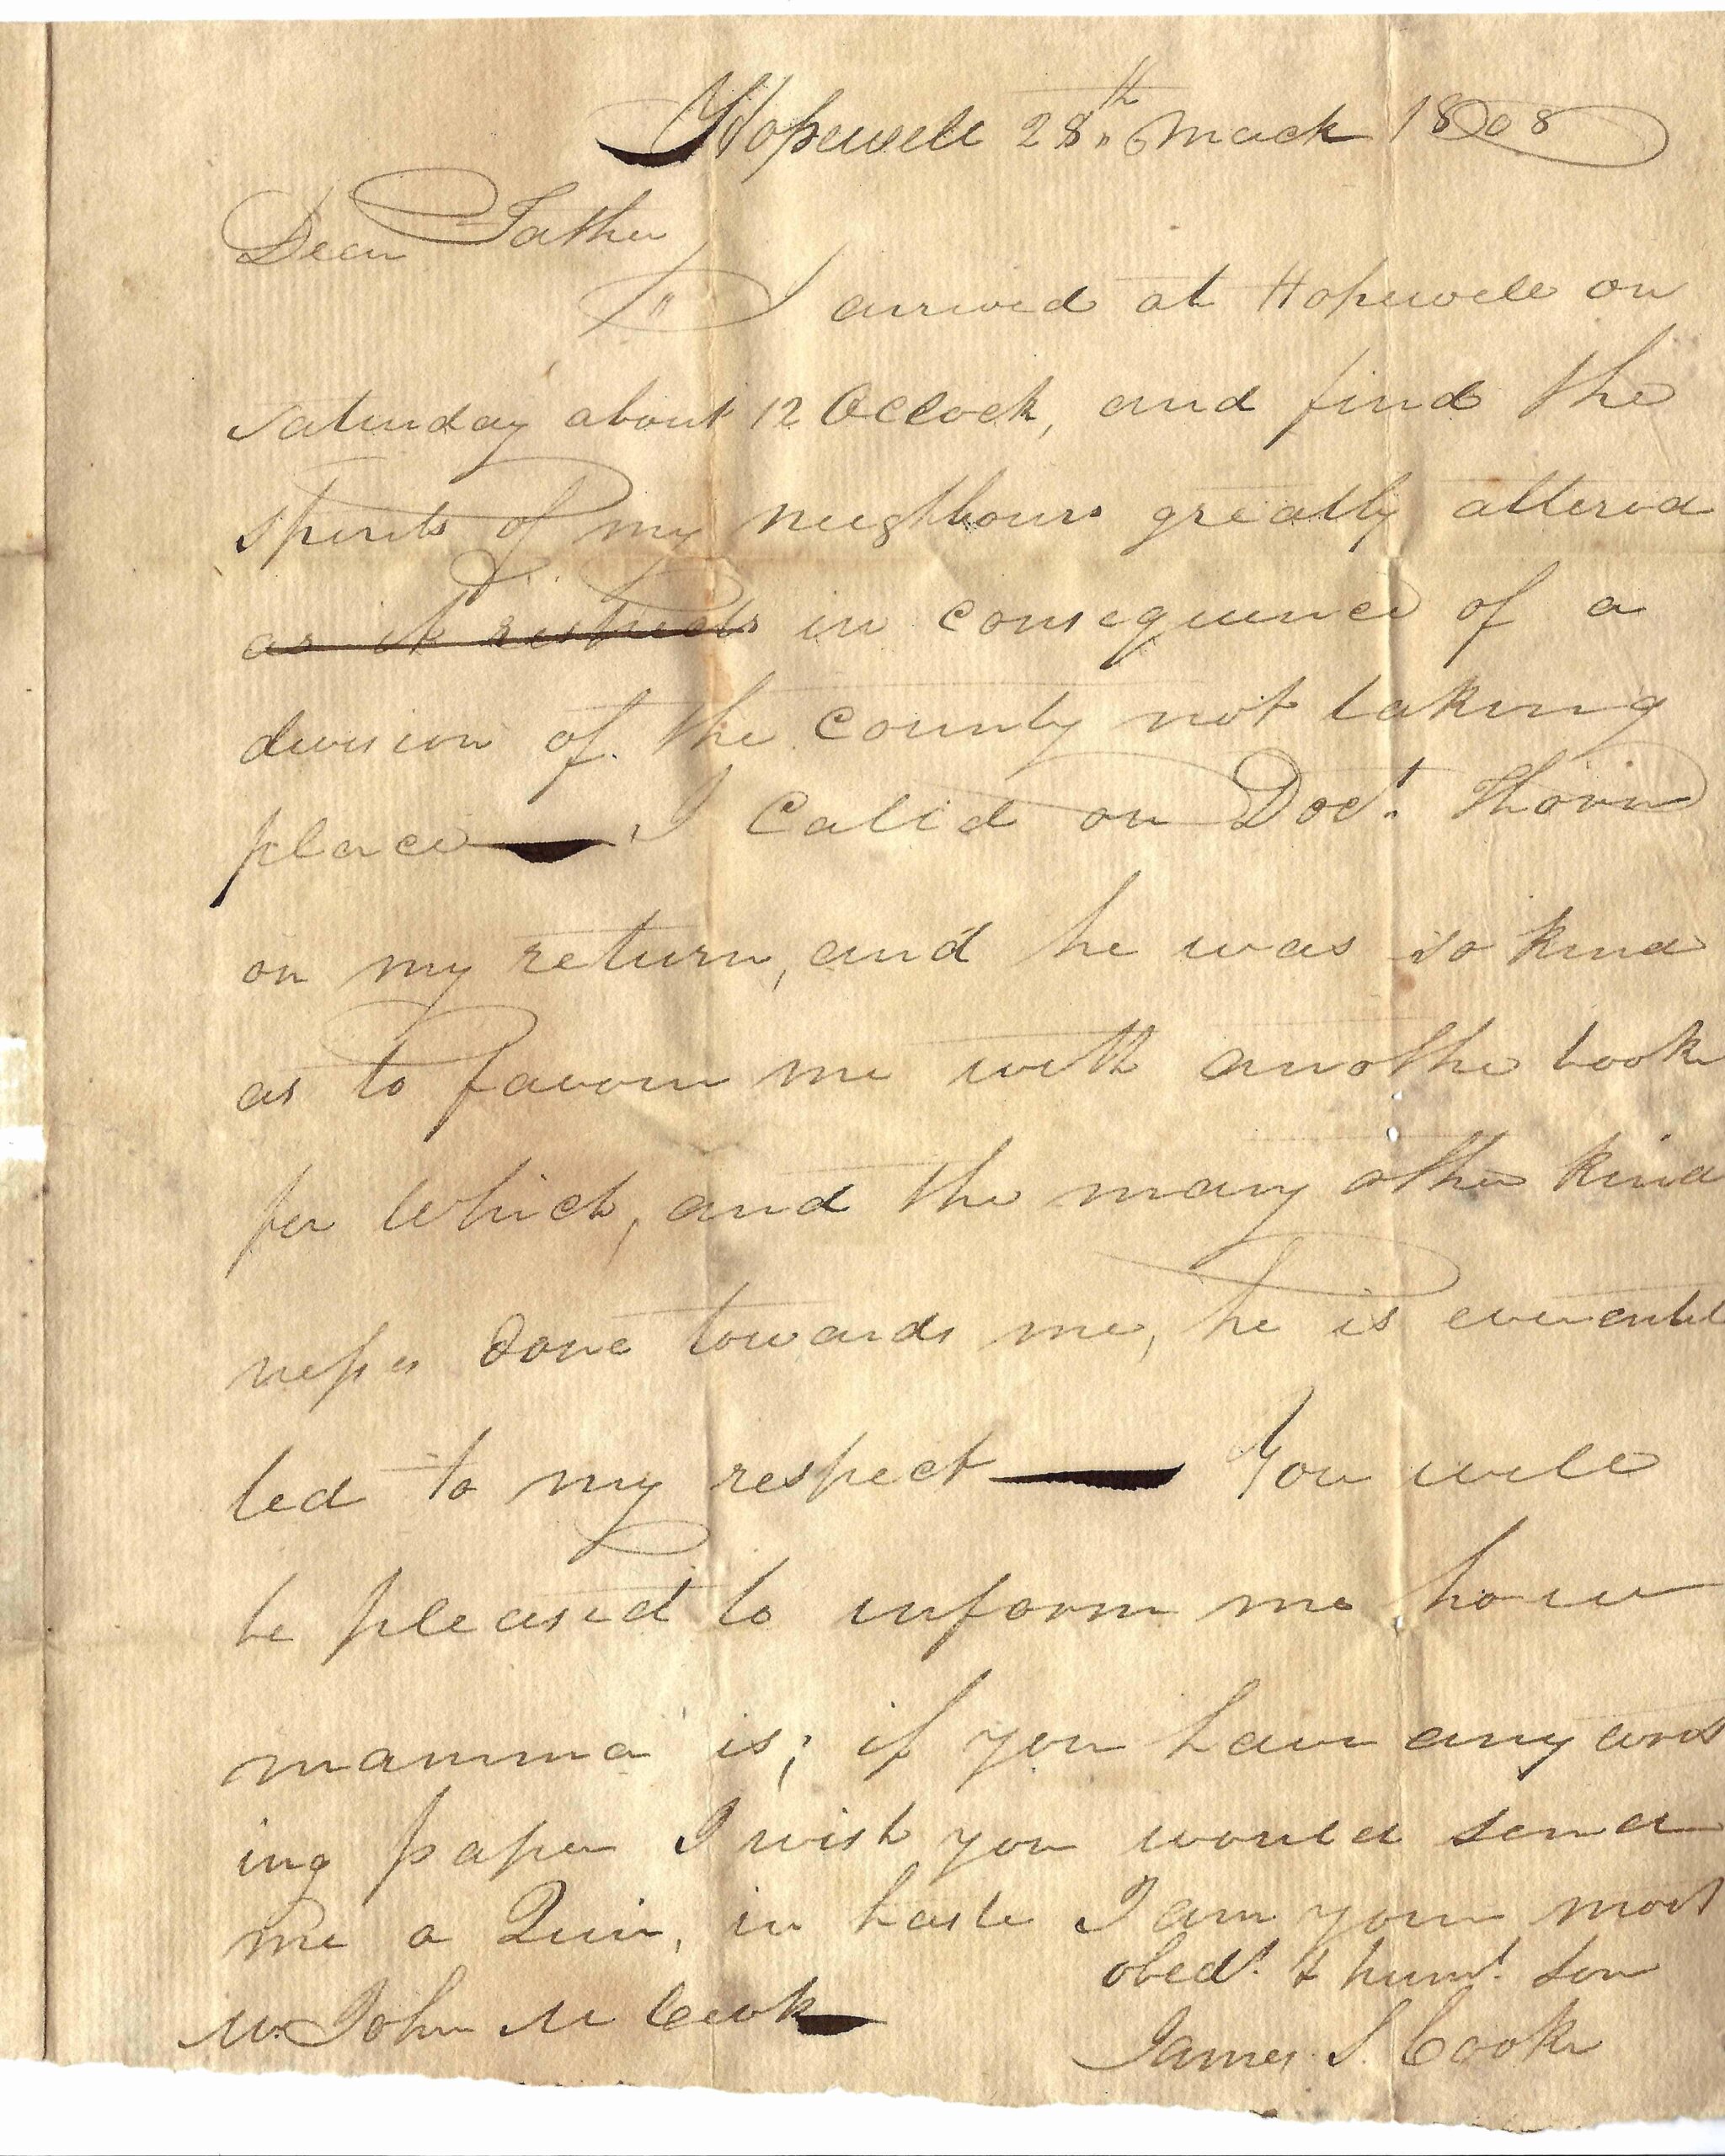 Hopewell 28th March 1808
Dear Father
I arrived at Hopewell on
saturday about 12 OClock, and find the
spirits of my neighbours greatly altered
as it respects in consequence of a
division of the county not taking
place — I Calld on Doct. Thorn
on my return, and he was so kind
as to favour me with anothe book
for which, and the many other kind
nesses done towards me, he is ever entit
led to my respect — You will
be pleased to inform me how
mamma is; if you have any
ing paper I wish you would send
me a Quir, in haste I am your most
obedt. & humt. son
Mr. John M Cook
James S. Cook